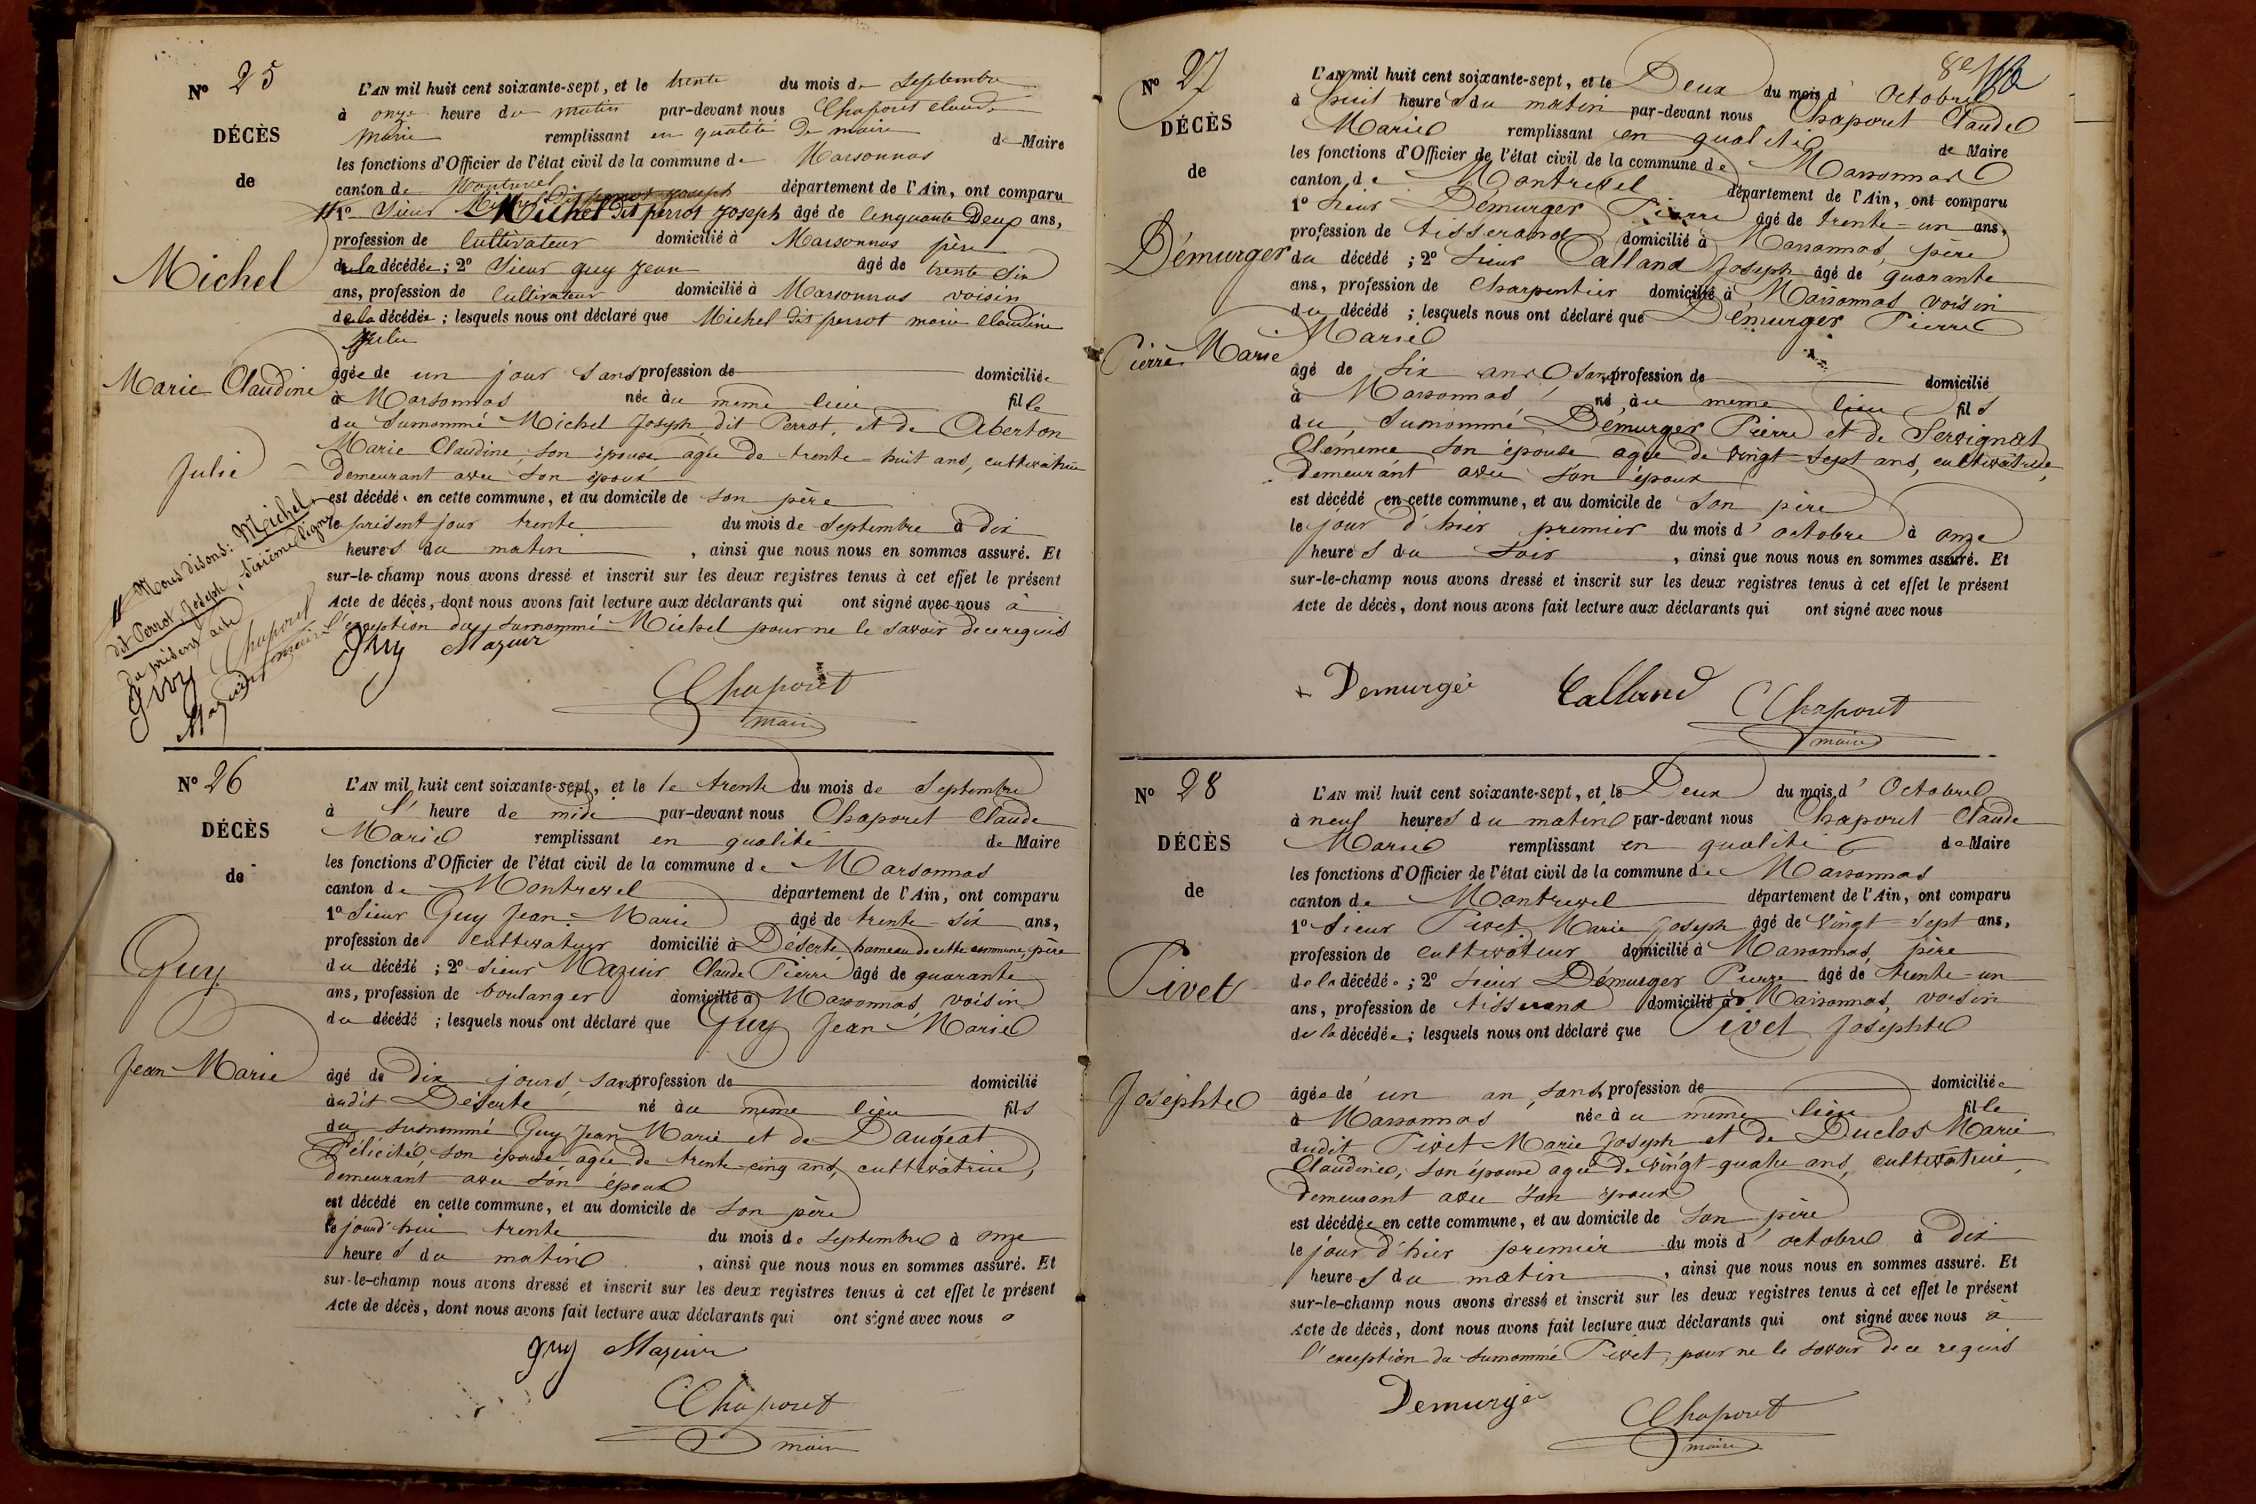 Nº 25
DÉCÈS
de
Michel
Marie Claudine
Julie
L'AN mil huit cent soixante-sept, et le trente du mois de Septembre
à onze heure du matin par-devant nous Chaporet Claude
Marie remplissant en qualité de maire de Maire
les fonctions d'Officier de l'état civil de la commune de Marsonnas
canton de Montrevel département de l'Ain, ont comparu
1º Sieur Michel dit perrot Joseph âgé de Cinquante Deux ans,
profession de Cultivateur domicilié à Marsonnas père
de la décédée ; 2º Sieur Guy Jean âgé de trente Six
ans, profession de Cultivateur domicilié à Marsonnas voisin
de la décédée ; lesquels nous ont déclaré que Michel dit perrot marie Claudine
Julie
âgée de un jour sans profession de domiciliée
à Marsonnas née au même lieu fille
du Surnommé Michel Joseph dit Perrot, et de Oberton
Marie Claudine, son épouse agée de trente-huit ans, cultivatrice
demeurant avec son époux
est décédée en cette commune, et au domicile de son père
le présent jour trente du mois de Septembre à dix
heures du matin , ainsi que nous nous en sommes assuré. Et
sur-le-champ nous avons dressé et inscrit sur les deux registres tenus à cet effet le présent
Acte de décès, dont nous avons fait lecture aux déclarants qui ont signé avec nous à
l'exception du surnommé Michel pour ne le savoir de ce requis
Guy Mazuir
CChaporet
maire
Nous disons: Michel
dit Perrot Joseph, sixième ligne
du présent acte
Guy Chaporet
Mazuir
Nº 26
DÉCÈS
de
Guy
Jean Marie
L'AN mil huit cent soixante-sept, et le le trente du mois de Septembre
à l' heure de midi par-devant nous Chaporet Claude
Marie remplissant en qualité de Maire
les fonctions d'Officier de l'état civil de la commune de Marsonnas
canton de Montrevel département de l'Ain, ont comparu
1º Sieur Guy Jean Marie âgé de trente-six ans,
profession de cultivateur domicilié à Déserte hameau de cette commune, père
du décédé ; 2º Sieur Mazuir Claude Pierre âgé de quarante
ans, profession de boulanger domicilié à Marsonnas, voisin
du décédé ; lesquels nous ont déclaré que Guy Jean Marie
âgé de dix jours, sans profession de domicilié
audit Déserte né au même lieu fils
du surnommé Guy Jean Marie et de Daugeat
Félicité son épouse agée de trente-cinq ans, cultivatrice,
demeurant avec son époux
est décédé en cette commune, et au domicile de son père
le jourd'hui trente du mois de Septembre à onze
heures du matin , ainsi que nous nous en sommes assuré. Et
sur-le-champ nous avons dressé et inscrit sur les deux registres tenus à cet effet le présent
Acte de décès, dont nous avons fait lecture aux déclarants qui ont signé avec nous
Guy Mazuir
CChaporet
maire
8e
Nº 27
DÉCÈS
de
Démurger
Pierre Marie
L'AN mil huit cent soixante-sept, et le Deux du mois d' Octobre
à huit heures du matin par-devant nous Chaporet Claude
Marie remplissant en qualité de Maire
les fonctions d'Officier de l'état civil de la commune de Marsonnas
canton de Montrevel département de l'Ain, ont comparu
1º Sieur Demurger Pierre âgé de trente-un ans,
profession de tisserand domicilié à Marsonnas, père
du décédé ; 2º Sieur Calland Joseph âgé de quarante
ans, profession de Charpentier domicilié à Marsonnas, voisin
du décédé ; lesquels nous ont déclaré que Demurger Pierre
Marie
âgé de Six ans, sans profession de domicilié
à Marsonnas né au même lieu fils
du Surnommé Démurger Pierre et de Servignat
Clémence son épouse agée de vingt-sept ans, cultivatrice,
demeurant avec son époux
est décédé en cette commune, et au domicile de son père
le jour d'hier premier du mois d' octobre à onze
heures du soir , ainsi que nous nous en sommes assuré. Et
sur-le-champ nous avons dressé et inscrit sur les deux registres tenus à cet effet le présent
Acte de décès, dont nous avons fait lecture aux déclarants qui ont signé avec nous
Demurgé Calland CChaporet
maire
Nº 28
DÉCÈS
de
Pivet
Joséphte
L'AN mil huit cent soixante-sept, et le Deux du mois d' Octobre
à neuf heures du matin par-devant nous Chaporet Claude
Marie remplissant en qualité de Maire
les fonctions d'Officier de l'état civil de la commune de Marsonnas
canton de Montrevel département de l'Ain, ont comparu
1º Sieur Pivet Marie Joseph âgé de Vingt-sept ans,
profession de cultivateur domicilié à Marsonnas, père
de la décédée ; 2º Sieur Démurger Pierre âgé de trente-un
ans, profession de tisserand domicilié à Marsonnas, voisin
de la décédée ; lesquels nous ont déclaré que Pivet Joséphte
âgée de un an, sans profession de domiciliée
à Marsonnas née au même lieu fille
dudit Pivet Marie Joseph et de Duclos Marie
Claudine, son épouse agée de vingt-quatre ans, cultivatrice,
demeurant avec son époux
est décédée en cette commune, et au domicile de son père
le jour d'hier premier du mois d' octobre à Dix
heures du matin , ainsi que nous nous en sommes assuré. Et
sur-le-champ nous avons dressé et inscrit sur les deux registres tenus à cet effet le présent
Acte de décès, dont nous avons fait lecture aux déclarants qui ont signé avec nous à
l'exception du surnommé Pivet, pour ne le savoir de ce requis
Demurgé
CChaporet
maire